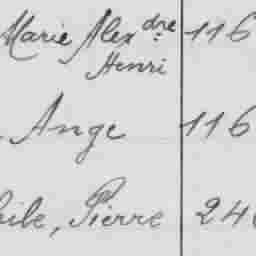 Marie Alex dre 116
Henri
Ange 116
Pierre